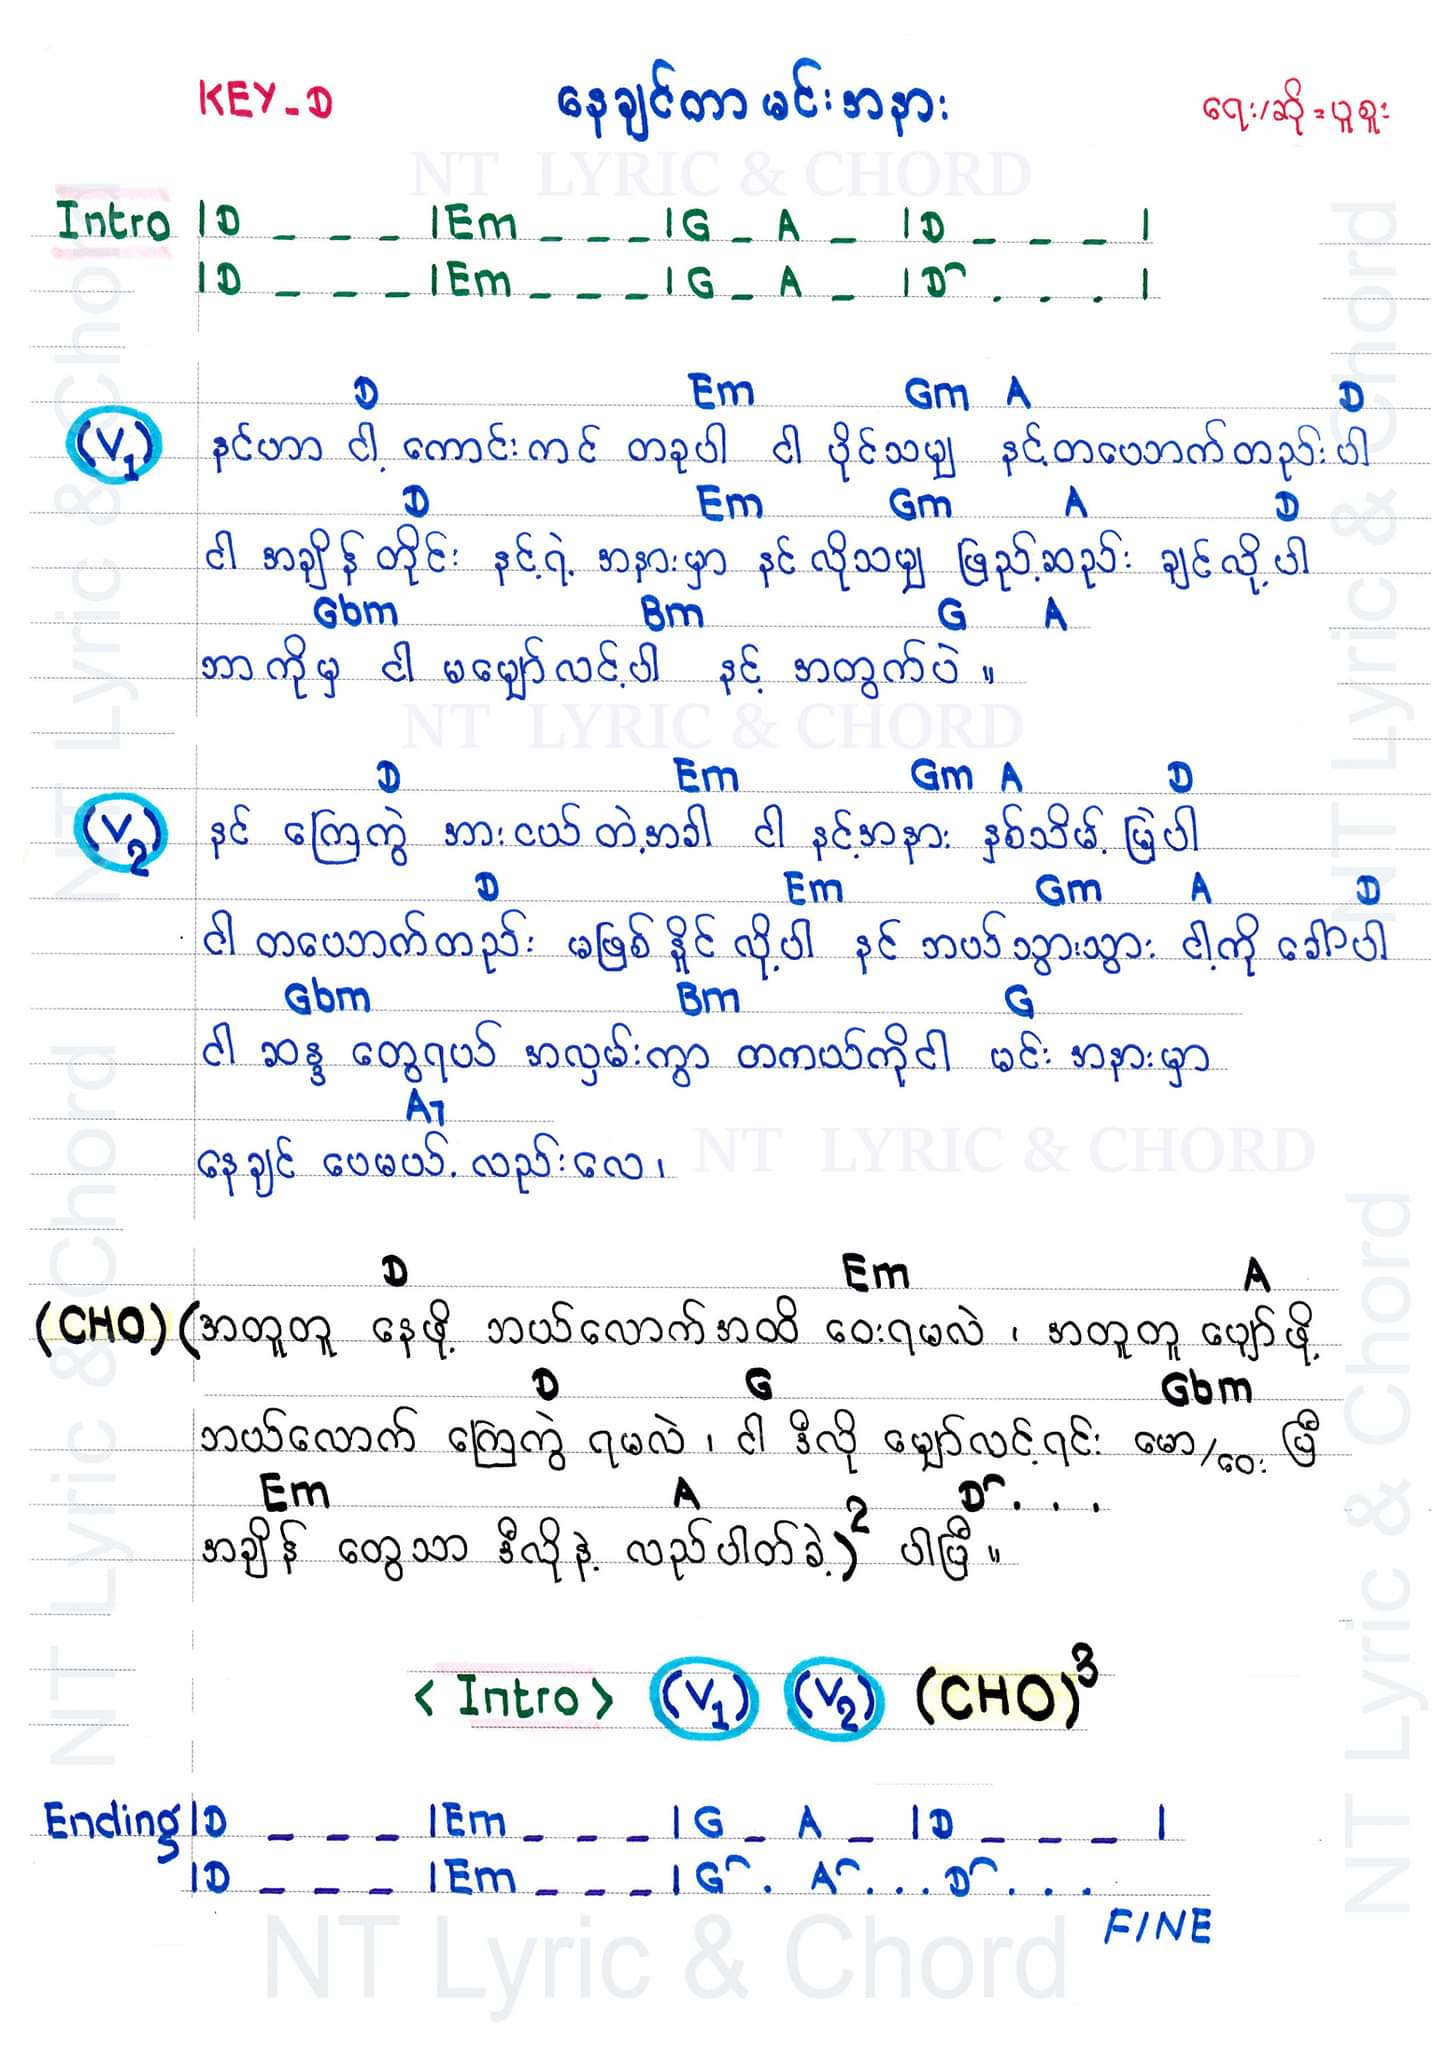 KEY - D နေချင်တာ မင်းအနား ရေး/ဆို = ယူစူး
NT LYRIC & CHORD
Intro |D _ _ _ |Em _ _ _ |G _ A _ |D _ _ _ |
|D _ _ _ |Em _ _ _ |G _ A _ |D⌢ . . . |
D Em Gm A D
(V1) နင်ဟာ ငါ့ ကောင်းကင် တခုပါ ငါ ပိုင်သမျှ နင့်တယောက်တည်းပါ
D Em Gm A D
ငါ အချိန်တိုင်း နင့်ရဲ့ အနားမှာ နင်လိုသမျှ ဖြည့်ဆည်း ချင်လို့ပါ
Gbm Bm G A
ဘာကိုမှ ငါ မမျှော်လင့်ပါ နင့် အတွက်ပဲ ။
NT LYRIC & CHORD
D Em Gm A D
(V2) နင် ကြေကွဲ အားငယ်တဲ့အခါ ငါ နင့်အနား နှစ်သိမ့် မြဲပါ
D Em Gm A D
ငါ တယောက်တည်း မဖြစ်နိုင်လို့ပါ နင် ဘယ်သွားသွား ငါ့ကို ခေါ်ပါ
Gbm Bm G
ငါ ဆန္ဒ တွေရယ် အလှမ်းကွာ တကယ်ကိုငါ မင်း အနားမှာ
A7
နေချင် ပေမယ့် လည်းလေ ၊
NT LYRIC & CHORD
D Em A
(CHO) (အတူတူ နေဖို့ ဘယ်လောက်အထိ ဝေးရမလဲ ၊ အတူတူ ပျော်ဖို့
D G Gbm
ဘယ်လောက် ကြေကွဲ ရမလဲ ၊ ငါ ဒီလို မျှော်လင့်ရင်း မော/ဝေး ပြီ
Em A D⌢ . . .
အချိန် တွေသာ ဒီလိုနဲ့ လည်ပါတ်ခဲ့)2 ပါပြီ ။
< Intro > (V1) (V2) (CHO)3
Ending |D _ _ _ |Em _ _ _ |G _ A _ |D _ _ _ |
|D _ _ _ |Em _ _ _ |G⌢ . A⌢ . . . D⌢ . . .
FINE
NT Lyric & Chord
NT Lyric & Chord
NT Lyric & Chord
NT Lyric & Chord
NT Lyric & Chord